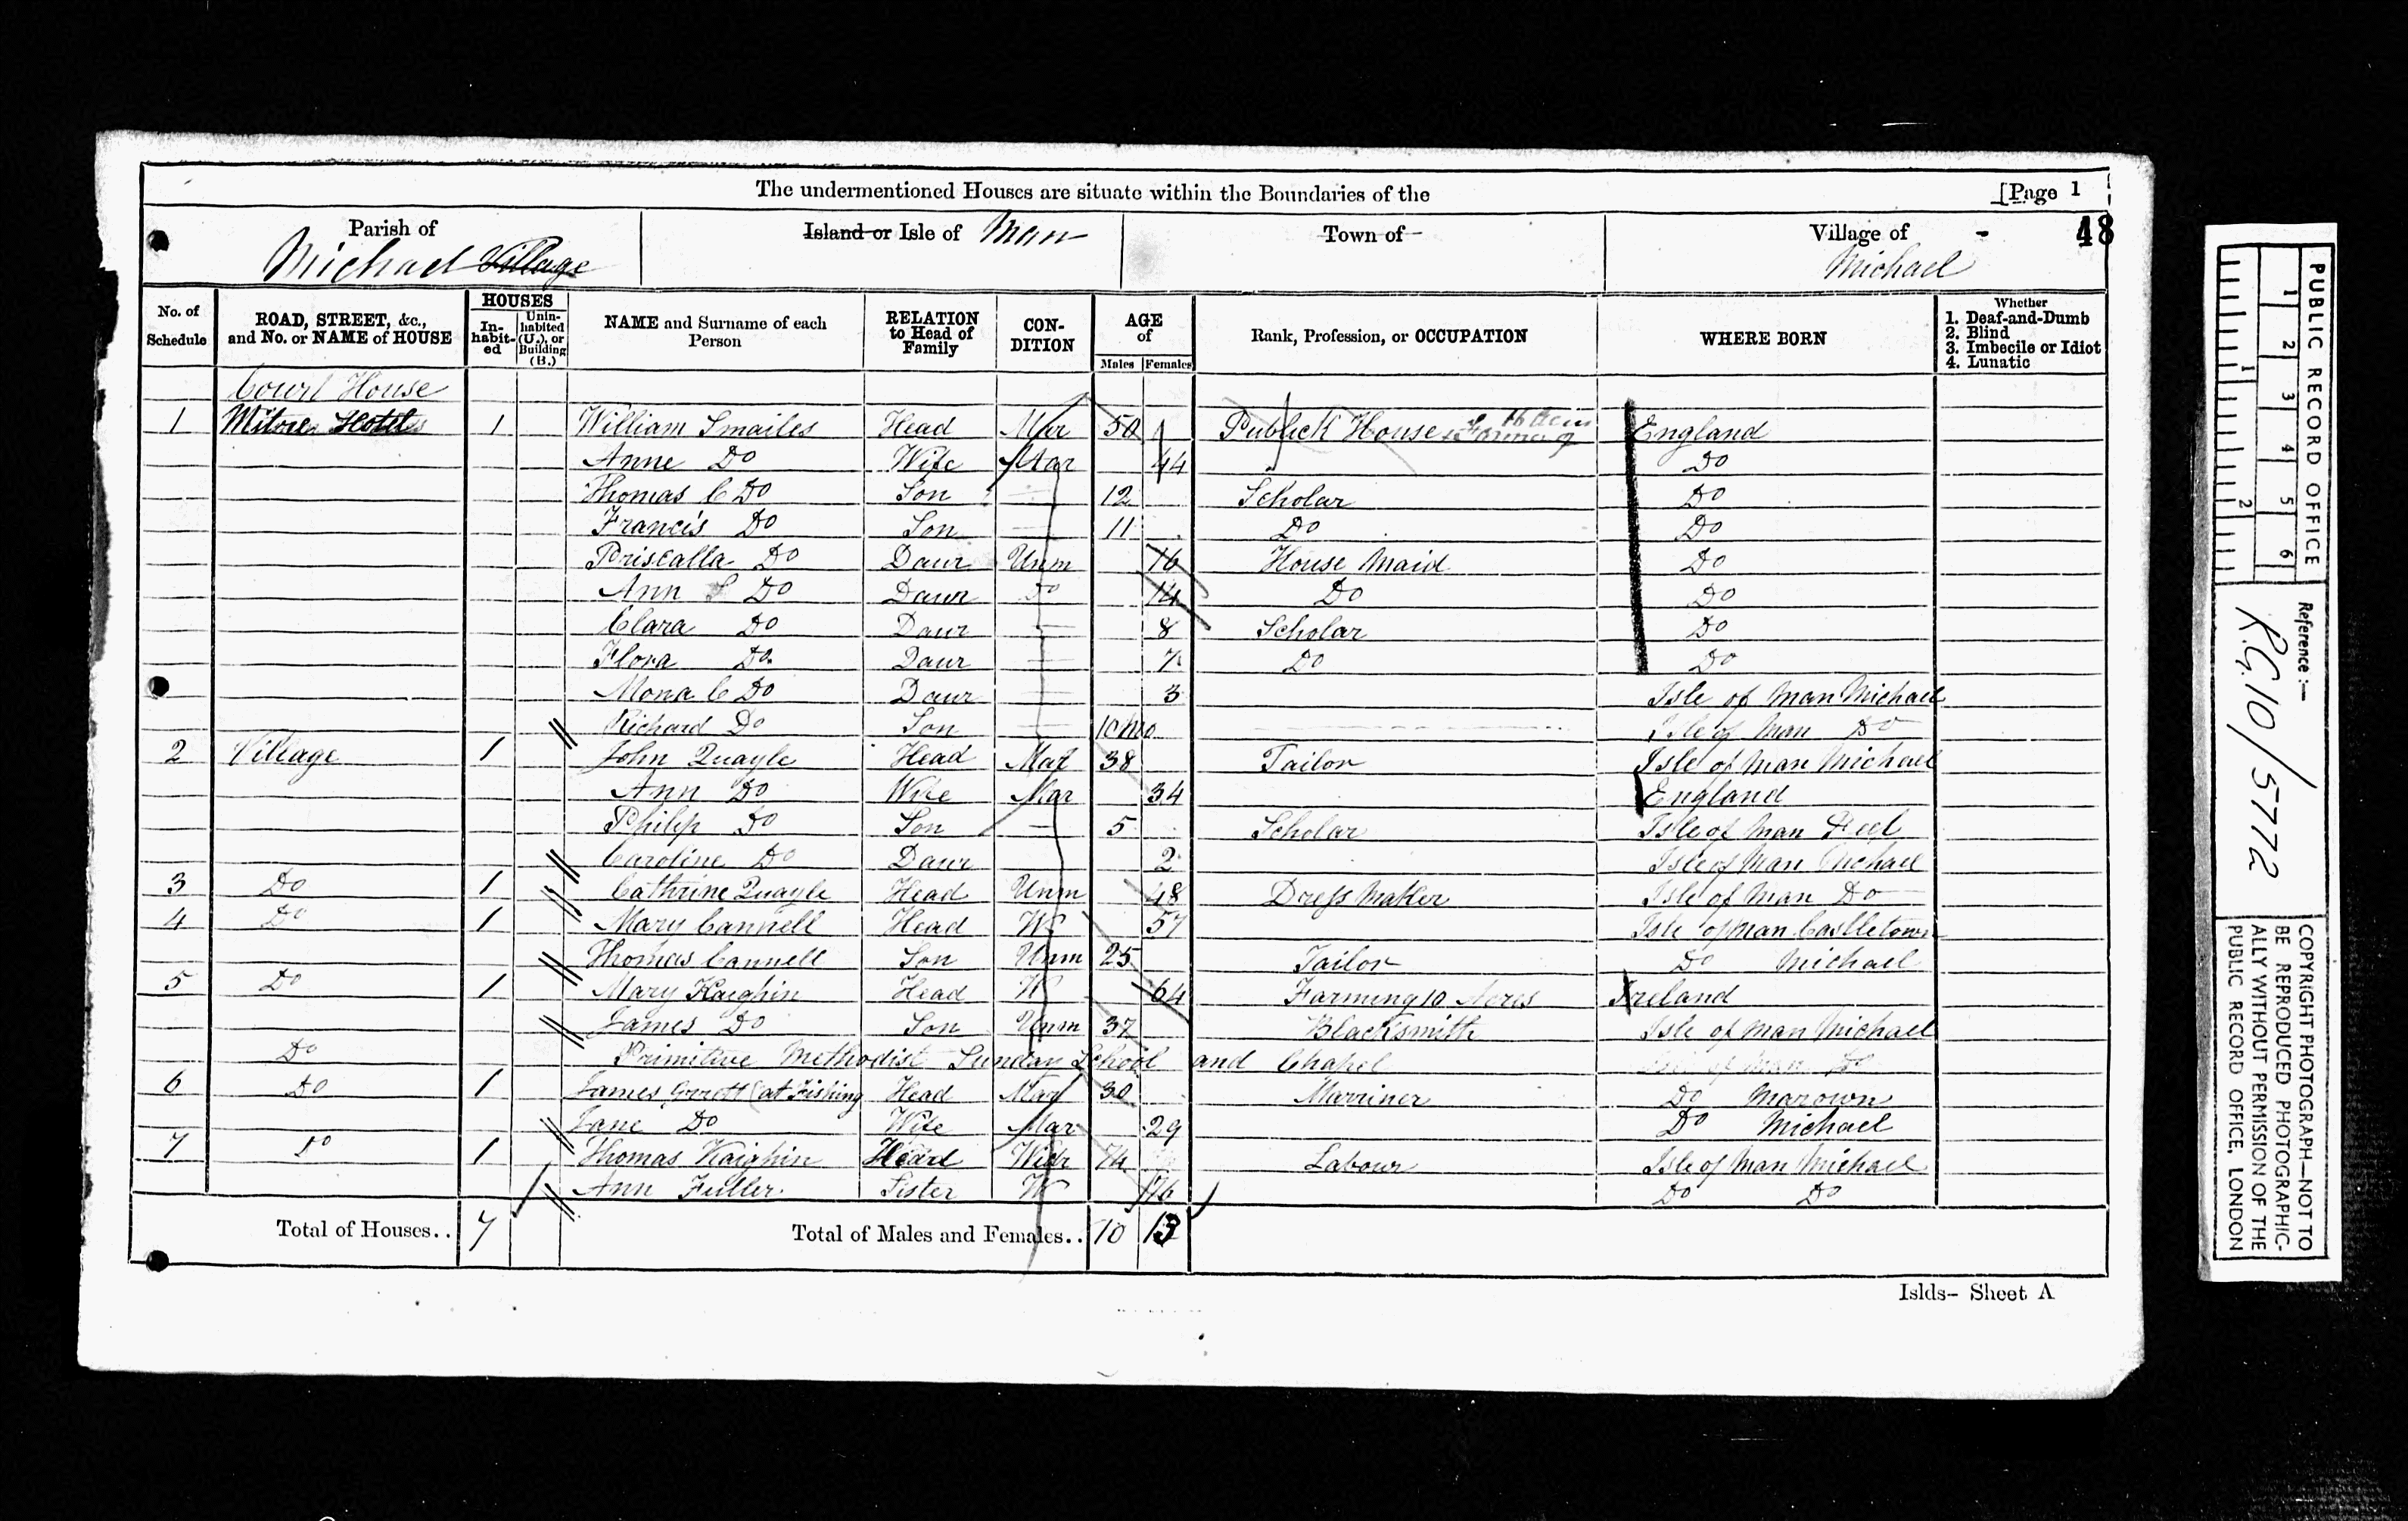 The undermentioned Houses are situate within the Boundaries of the [Page 1
Parish of Michael Village
Island or Isle of Man
Town of
Village of - Michael
48
No. of Schedule
ROAD, STREET, &c., and No. or NAME of HOUSE
HOUSES
In-habit-ed
Unin-habited (U.), or Building (B.)
NAME and Surname of each Person
RELATION to Head of Family
CON-DITION
AGE of
Males Females
Rank, Profession, or OCCUPATION
WHERE BORN
Whether
1. Deaf-and-Dumb
2. Blind
3. Imbecile or Idiot
4. Lunatic
Court House
1 Mitre Hotel 1 William Smailes Head Mar 50 Publick House & Farmer of 16 Acres England
Anne Do Wife Mar 44 Do
Thomas C Do Son 12 Scholar Do
Francis Do Son 11 Do Do
Priscalla Do Daur Unm 16 House Maid Do
Ann S Do Daur Do 14 Do Do
Clara Do Daur 8 Scholar Do
Flora Do Daur 7 Do Do
Mona C Do Daur 3 Isle of Man Michael
Richard Do Son 10 Mo Isle of Man Do
2 Village 1 John Quayle Head Mar 38 Tailor Isle of Man Michael
Ann Do Wife Mar 34 England
Philip Do Son 5 Scholar Isle of Man Peel
Caroline Do Daur 2 Isle of Man Michael
3 Do 1 Cathrine Quayle Head Unm 48 Dress Maker Isle of Man Do
4 Do 1 Mary Cannell Head W 57 Isle of Man Castletown
Thomas Cannell Son Unm 25 Tailor Do Michael
5 Do 1 Mary Kaighin Head W 64 Farming 10 Acres Ireland
James Do Son Unm 37 Blacksmith Isle of Man Michael
Do Primitive Methodist Sunday School and Chapel
6 Do 1 James (at Fishing Head Mar 30 Marriner Do Marown
Jane Do Wife Mar 29 Do Michael
7 Do 1 Thomas Kaighin Head Widr 74 Labour Isle of Man Michael
Ann Fuller Sister W 76 Do Do
Total of Houses.. 7 Total of Males and Females.. 10 13
Islds- Sheet A
PUBLIC RECORD OFFICE
1 2 3 4 5 6
1 2
Reference:-
R.G.10/5772
COPYRIGHT PHOTOGRAPH—NOT TO
BE REPRODUCED PHOTOGRAPHIC-
ALLY WITHOUT PERMISSION OF THE
PUBLIC RECORD OFFICE, LONDON